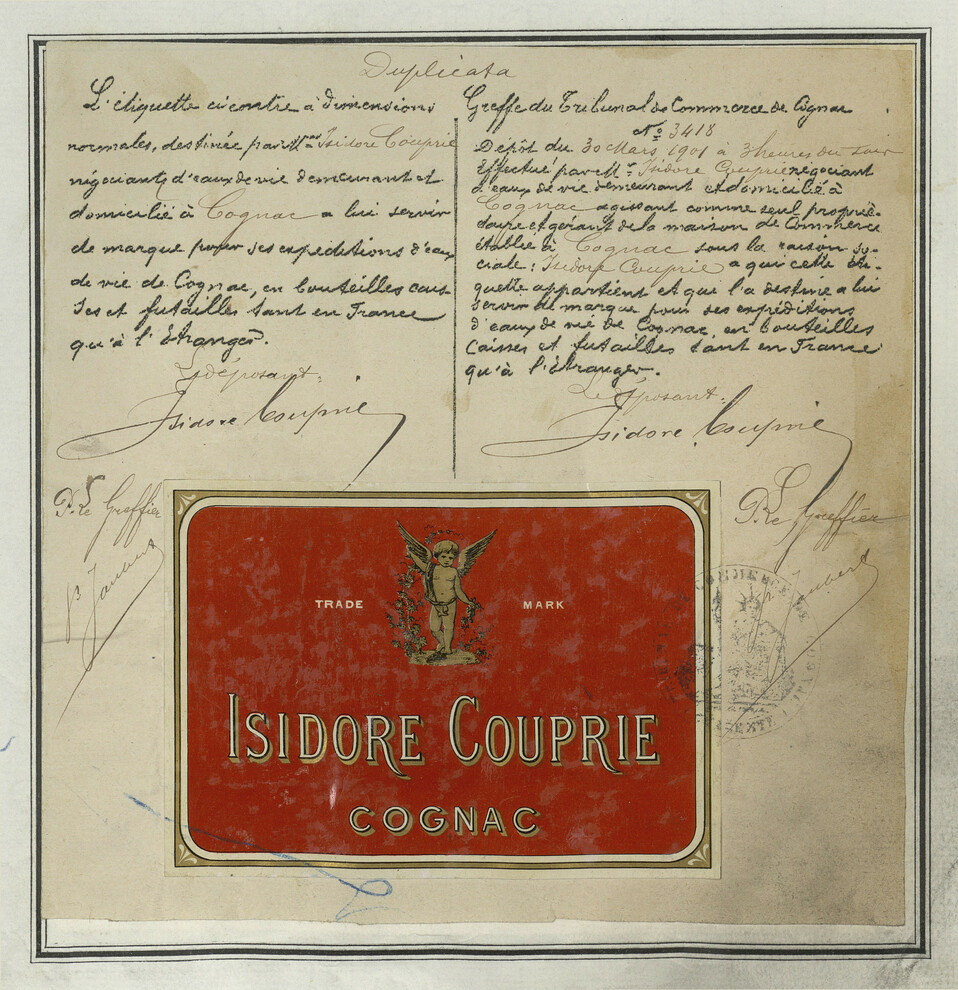 Duplicata
L'étiquette ci contre à dimensions
normales, destinée par Mr Isidore Couprie
négociant d'eaux de vie demeurant et
domicilié à Cognac a lui servir
de marque pour ses expéditions d'eaux
de vie de Cognac, en bouteilles cais-
ses et futailles tant en France
qu'à l'étranger.
Le déposant:
Isidore Couprie
P. Le Greffier
Greffe du Tribunal de Commerce de Cognac
No 3418
Dépôt du 30 Mars 1901 à 3 heures du soir
Effectué par Mr Isidore Couprie négociant
d'eaux de vie demeurant et domicilié à
Cognac agissant comme seul proprié-
taire et gérant de la maison de Commerce
établie à Cognac sous la raison So-
ciale: Isidore Couprie a qui cette éti-
quette appartient et qui l'a destine a lui
servir de marque pour ses expéditions
d'eaux de vie de Cognac, en bouteilles
Caisses et futailles tant en France
qu'à l'étranger.
Le déposant:
Isidore Couprie
P. Le Greffier
TRADE MARK
ISIDORE COUPRIE
COGNAC